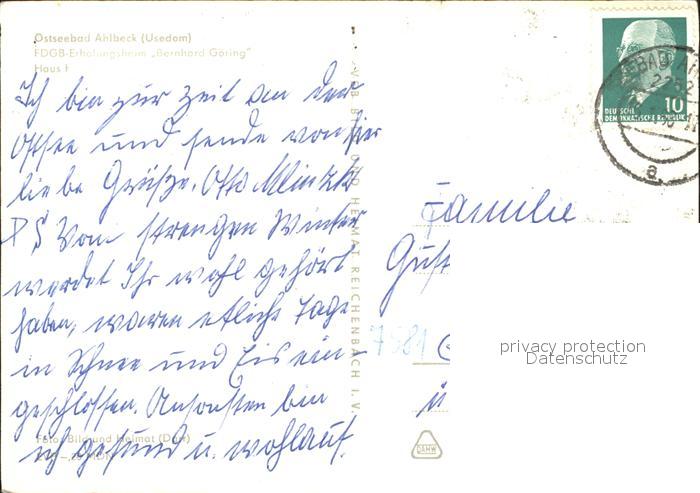 Ostseebad Ahlbeck (Usedom)
FDGB-Erholungsheim „Bernhard Göring"
Haus I
Ich bin zur Zeit an der
Ostsee und sende von hier
liebe Grüße. Otto
PS Vom strengen Winter
werdet Ihr wohl gehört
haben, waren etliche Tage
in Schnee und Eis ein-
geschlossen. Ansonsten bin
ich gesund u. wohlauf.
Foto: Bild und Heimat (Darr)
UND HEIMAT REICHENBACH I. V.
DEUTSCHE
DEMOKRATISCHE REPUBLIK
10
BAD
2252
a
Familie
Gust
7581
ü
DEWAG
privacy protection
Datenschutz